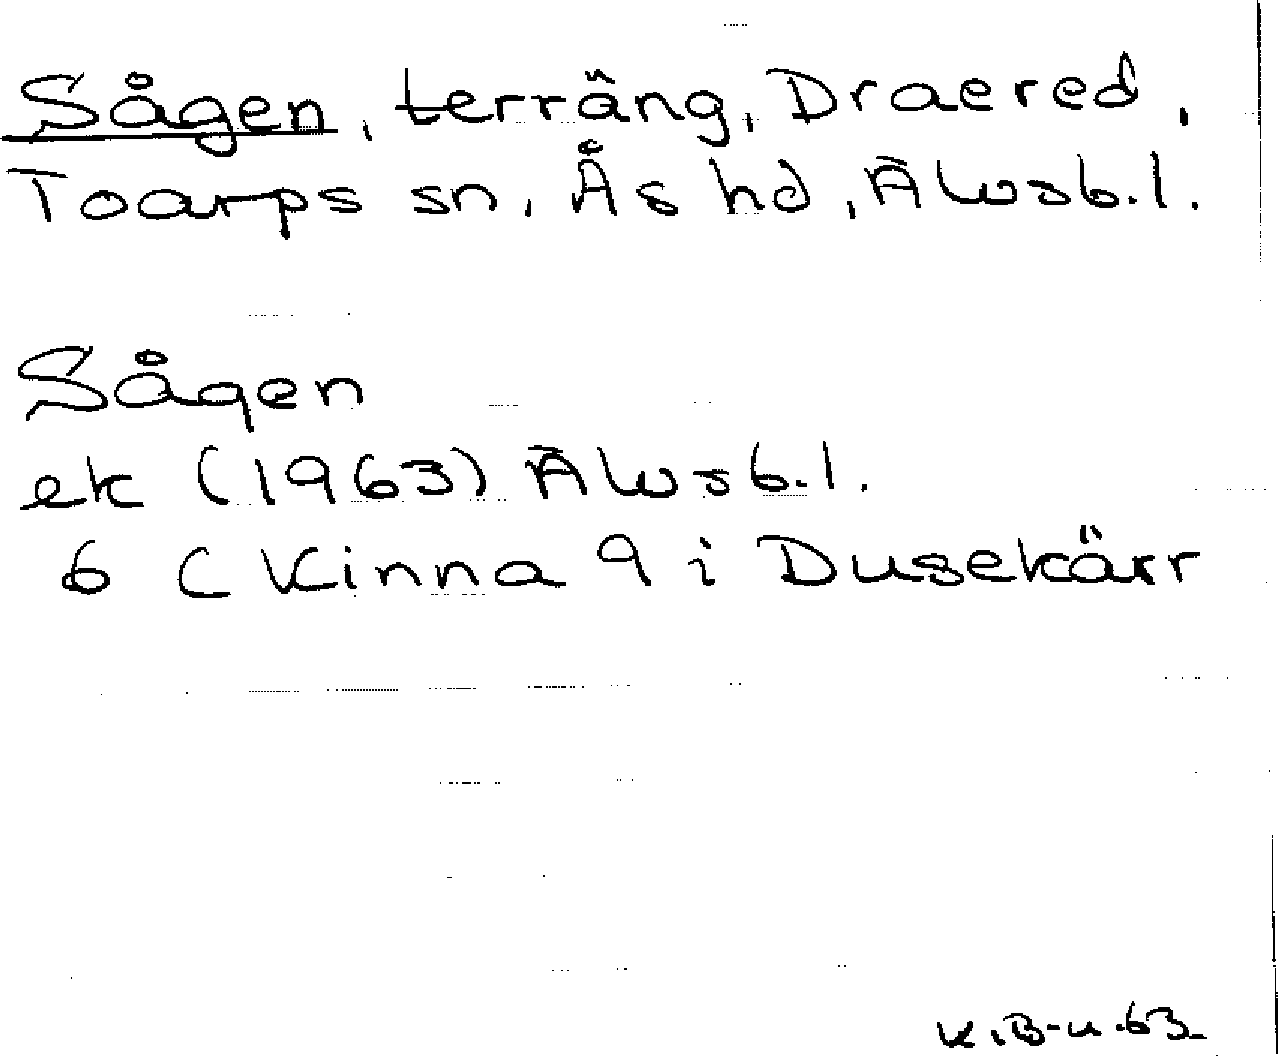 Sågen, terräng, Draered,
Toarps sn, Ås hd, Älvsb.l.
Sågen
ek (1963) Älvsb.l.
6 C Kinna 9 i Dusekärr
K.B-n.63.